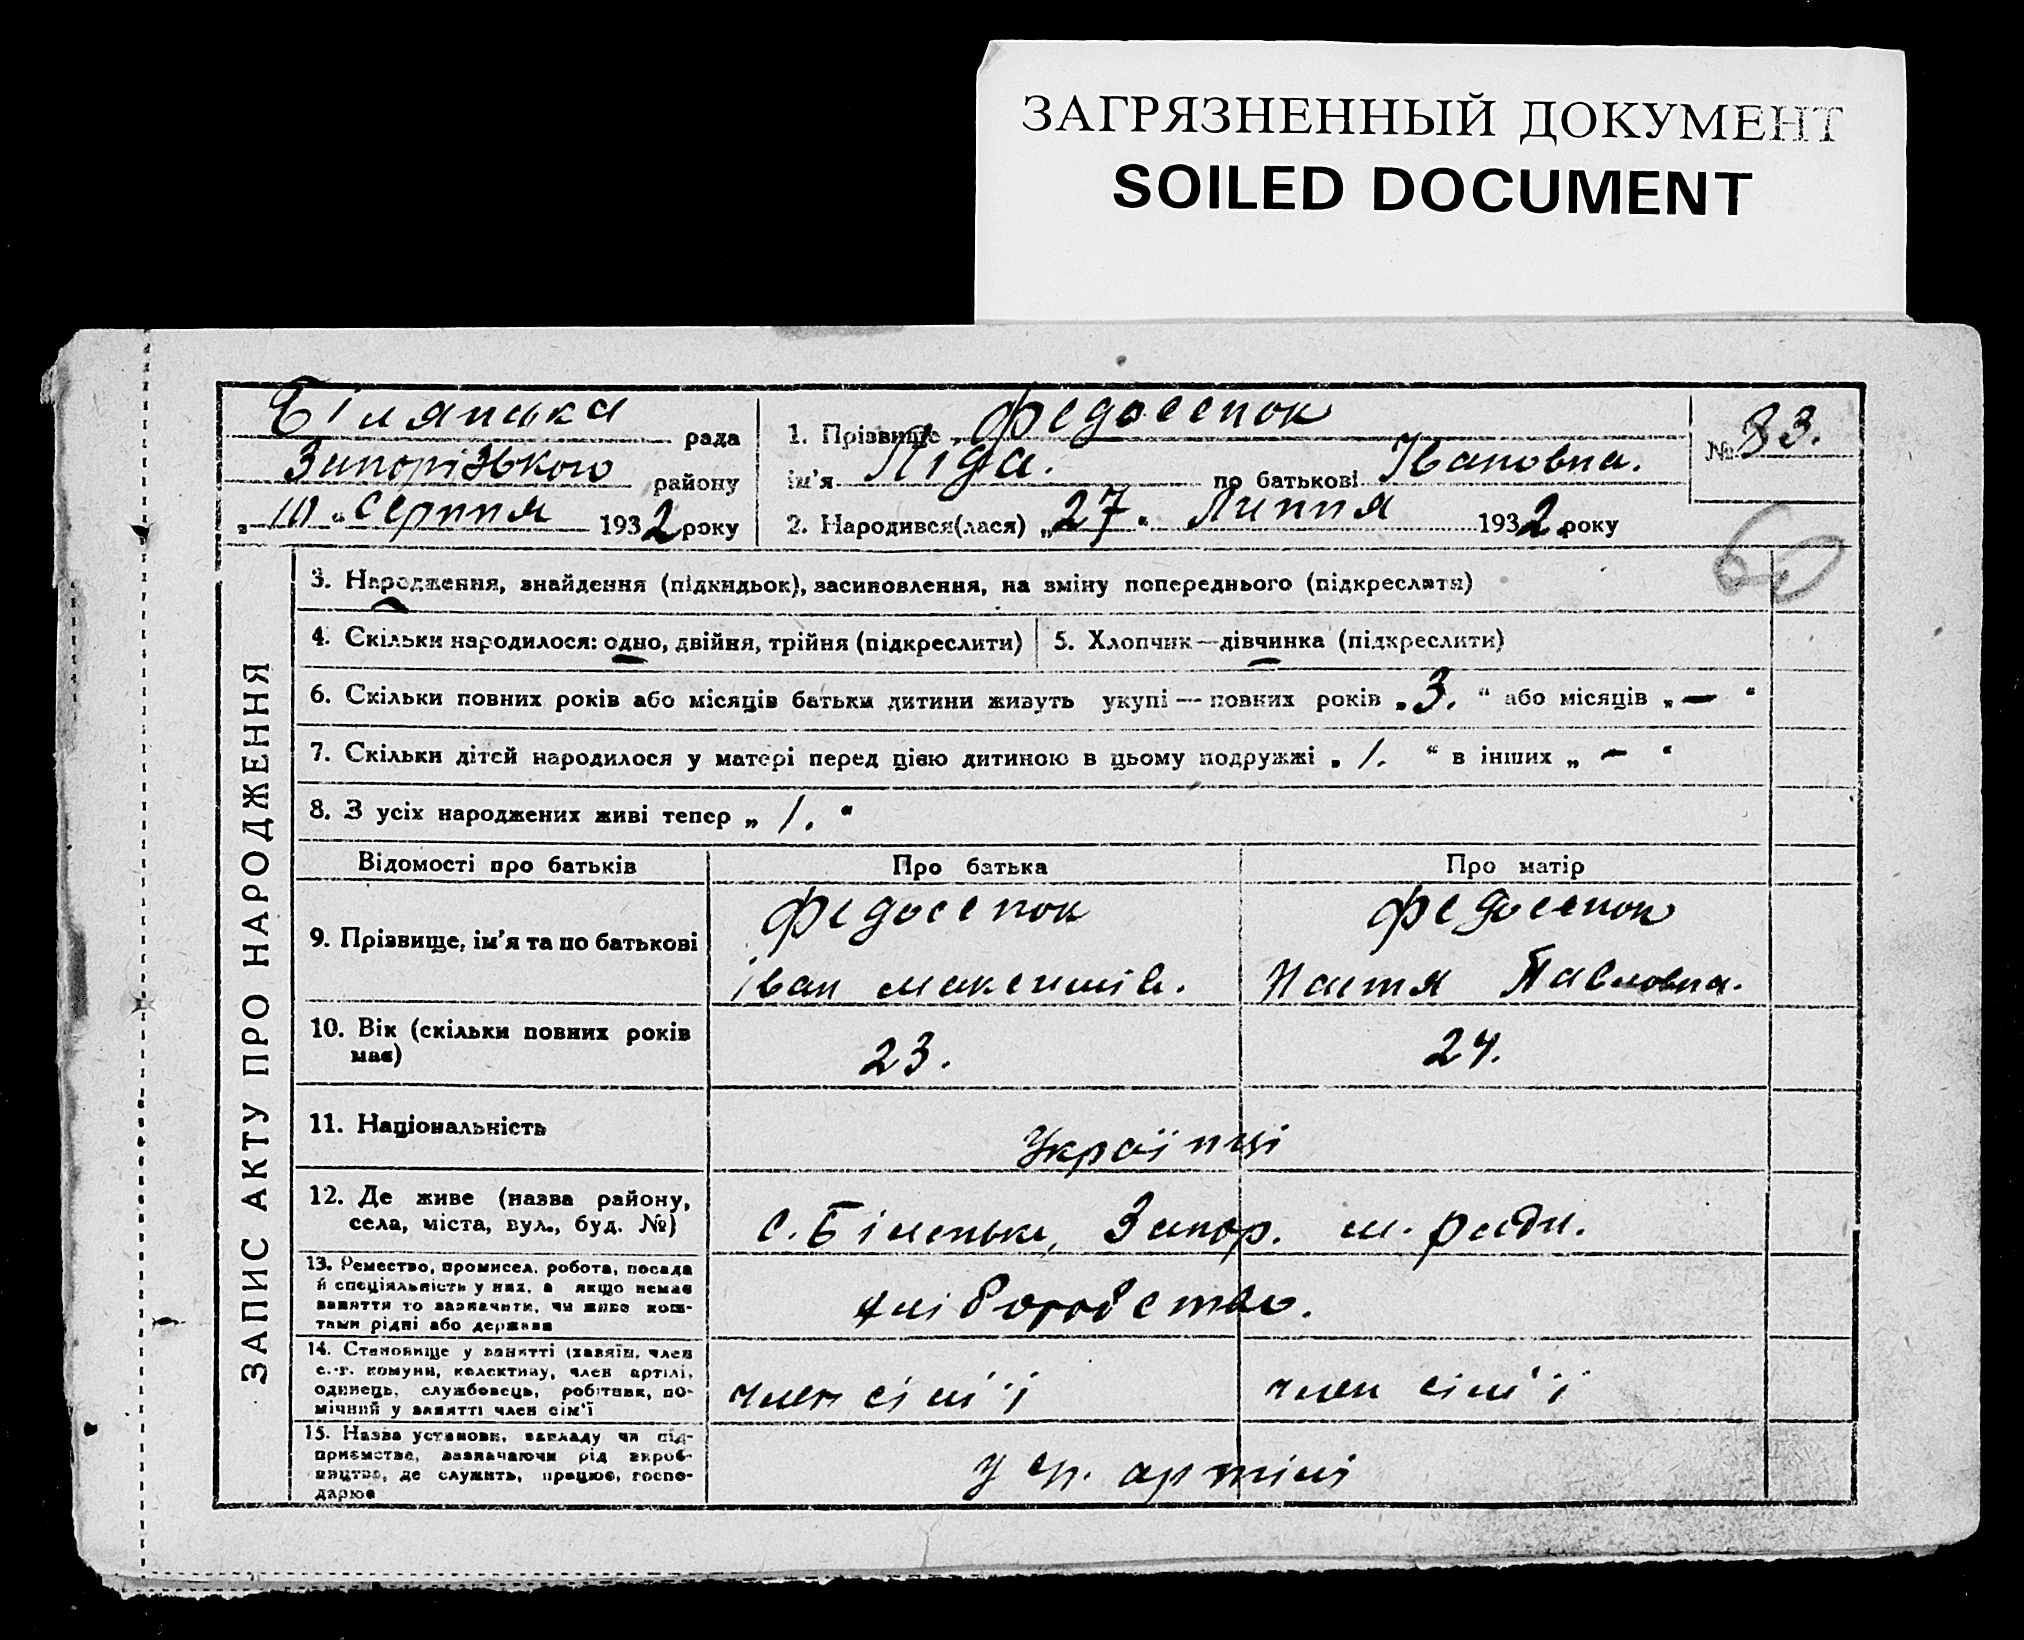 ЗАГРЯЗНЕННЫЙ ДОКУМЕНТ
SOILED DOCUMENT
Білянська рада
Запорізького району
„10“ серпня 1932 року
1. Прізвище Федосенок
ім'я Ліда. по батькові Івановна.
2. Народився(лася) „27“ Липня 1932 року
№ 83.
ЗАПИС АКТУ ПРО НАРОДЖЕННЯ
3. Народження, знайдення (підкидьок), засиновлення, на зміну попереднього (підкреслити)
4. Скільки народилося: одно, двійня, трійня (підкреслити)
5. Хлопчик—дівчинка (підкреслити)
6. Скільки повних років або місяців батьки дитини живуть укупі — повних років „3.“ або місяців „—“
7. Скільки дітей народилося у матері перед цією дитиною в цьому подружжі „1.“ в інших „—“
8. З усіх народжених живі тепер „1.“
Відомості про батьків
Про батька
Про матір
9. Прізвище, ім'я та по батькові
Федосенок
Іван Максимів.
Федосенок
Настя Павловна.
10. Вік (скільки повних років має)
23.
24.
11. Національність
Українці
12. Де живе (назва району,
села, міста, вул., буд. №)
с. Біленьке, Запор. м. ради.
13. Ремество, промисел, робота, посада
й спеціяльність у них, а якщо немає
заняття то зазначити, чи живе кош-
тами рідні або держави
хліборобство.
14. Становище у занятті (хазяїн, член
с.-г. комуни, колективу, член артілі,
одинець, службовець, робітник, по-
мічний у занятті член сім'ї
член сім'ї
член сім'ї
15. Назва установи, закладу чи під-
приємства, зазначаючи рід вироб-
ництва, де служить, працює, госпо-
дарює
у ср. артілі